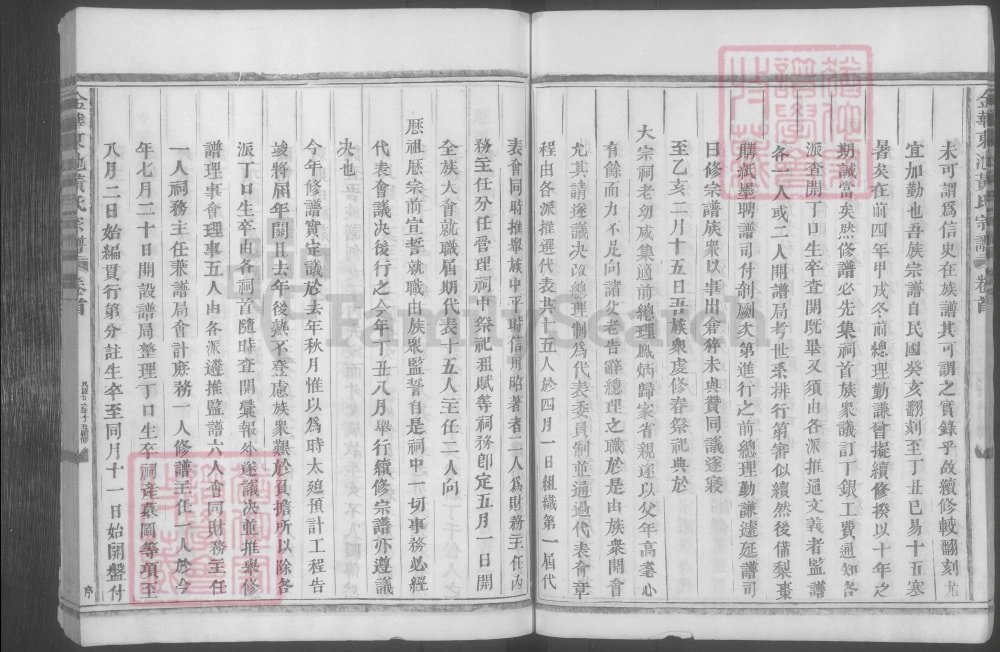 未可謂爲信史在族譜其可謂之實錄乎故續修較翻刻尤
宜加勤也吾族宗譜自民國癸亥翻刻至丁丑已易十五寒
暑矣在前四年甲戌冬前總理勤謙曾擬續修揆以十年之
期誠當矣然修譜必先集祠首族衆議訂丁銀工費通知各
派查開丁口生卒查開既畢又須由各派推通文義者監譜
各一人或二人開譜局考世系排行第審似續然後備梨棗
購紙墨聘譜司付剞劂次第進行之前總理勤謙遽延譜司
日修宗譜族衆以事出倉猝未與贊同議遂寢
至乙亥二月十五日吾族衆虔修春祭祀典於
大宗祠老幼咸集適前總理鳳炳歸家省親遂以父年高耄心
有餘而力不足向諸父老告辭總理之職於是由族衆開會
允其請遂議决改總理制爲代表委員制並通過代表會章
程由各派推選代表共十五人於四月一日組織第一屆代
表會同時推舉族中平時信用昭著者二人爲財務主任內
務主任分任管理祠中祭祀租賦等祠務卽定五月一日開
全族大會就職屆期代表十五人主任二人向
歷祖歷宗前宣誓就職由族衆監誓自是祠中一切事務必經
代表會議决後行之今年丁丑八月舉行續修宗譜亦遵議
决也
今年修譜實定議於去年秋月惟以爲時太廹預計工程告
竣將屆年關且去年後熟不登慮族衆艱於負擔所以除各
派丁口生卒由各祠首隨時查開彙報外遂議决並推舉修
譜理事會理事五人由各派遴推監譜六人會同財務主任
一人祠務主任兼譜局會計庶務一人修譜主任一人於今
年七月二十日開設譜局整理丁口生卒祠產墓圖等項至
八月二日始編貫行第分註生卒至同月十一日始開盤付
金華東池黃氏宗譜 卷首
金華東池黃氏宗譜 卷首
序
FamilySearch